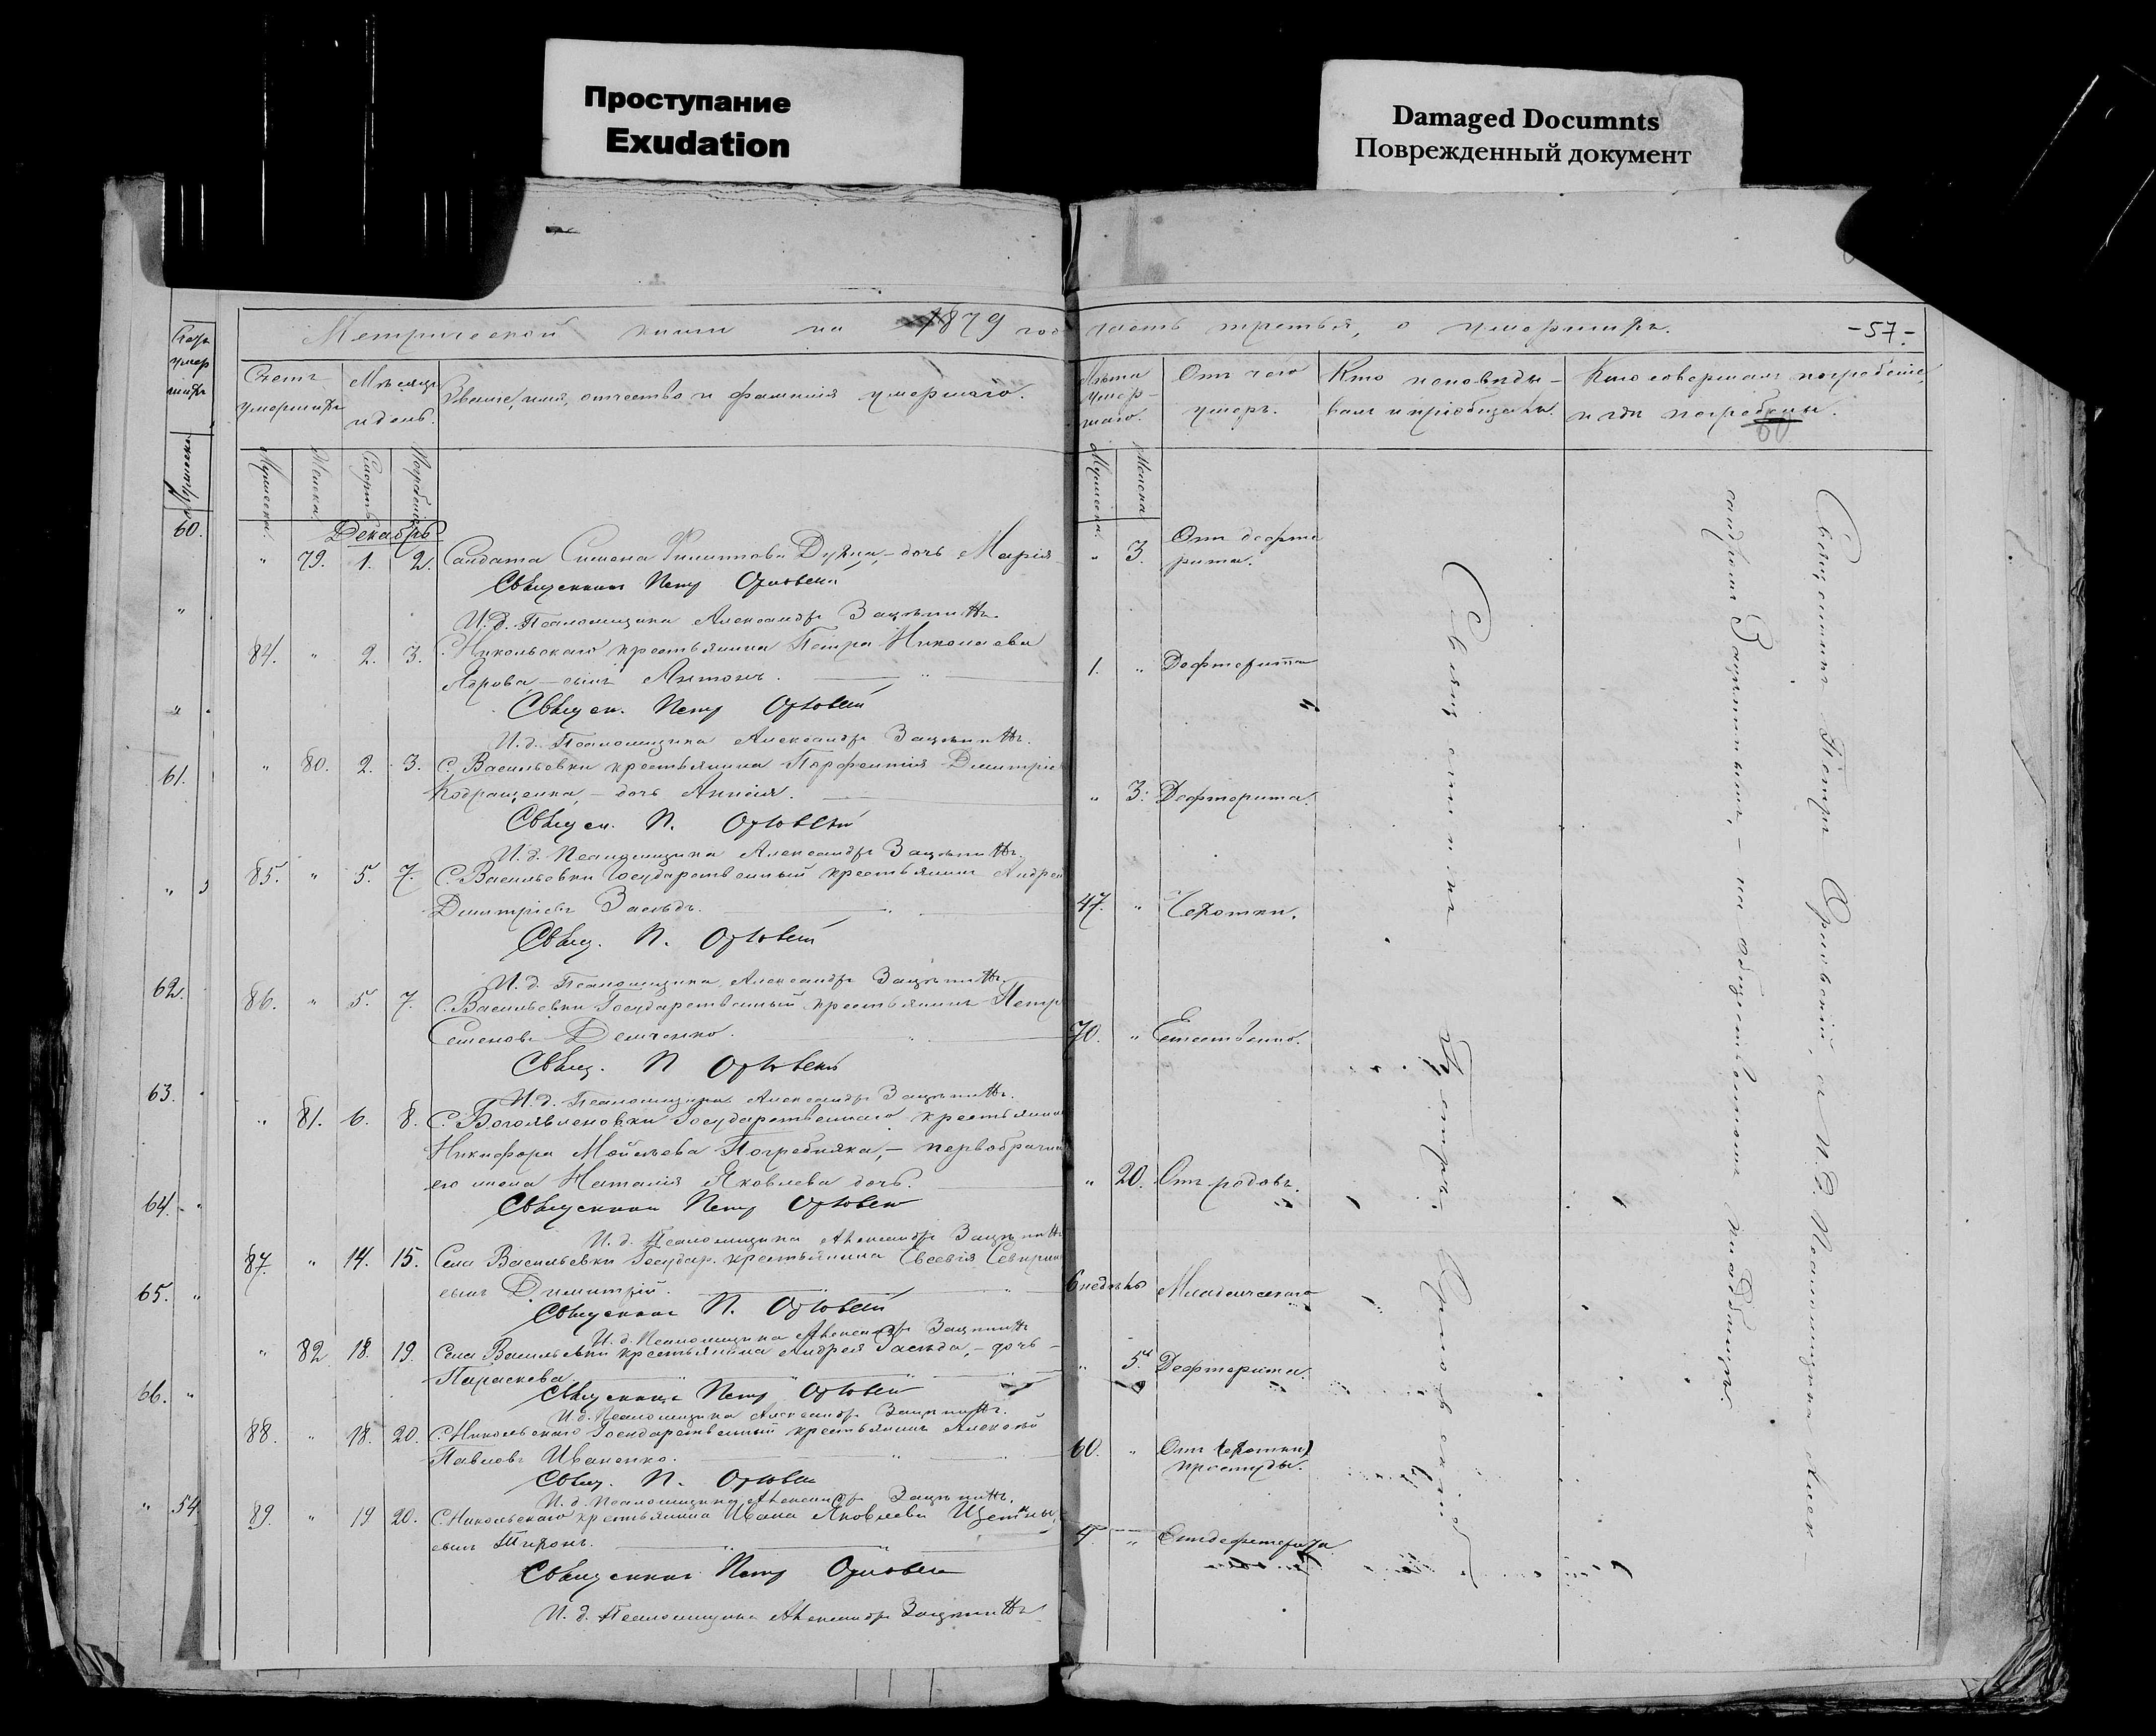 Проступание
Exudation
Damaged Documnts
Поврежденный документ
Метрической книги на 1879 год часть третья, о умершихъ. -57-
Счетъ умершихъ
Мѣсяцъ и день.
Званіе, имя, отчество и фамилія умершаго.
Мужеска.
Женска.
Смерть
Погребенія
Лѣта умершаго.
Мужеска.
Женска
Отъ чего умеръ.
Кто исповѣдывалъ и пріобщалъ.
Кто совершалъ погребеніе, и гдѣ погребены.
60
Декабрь
" 79. 1. 2. Солдата Симеона Филиппова дочь Марія " 3. Отъ дефте
рита.
Священникъ Петръ Орловскій
И. д. Псаломщика Александръ
84. " 2. 3. С. Никольскаго крестьянина Петра Николаева
сынъ Антонъ. 1. " Дефтерита
Священ. Петръ Орловскій
И. д. Псаломщика Александръ
" 80. 2. 3. С. Васильевки крестьянина Парфентія Димитріев
дочь Анисія. " 3. Дефтерита.
Священ. П. Орловскій
И. д. Псаломщика Александръ
85. " 5. 7. С. Васильевки Государственный крестьянинъ Андрей
Димитріевъ 47. " Чахотки.
Свящ. П. Орловскій
И. д. Псаломщика Александръ
86. " 5. 7. С. Васильевки Государственный крестьянинъ Петръ
Семеновъ Демченко. 70. " Естественно.
Свящ. П Орловскій
И. д. Псаломщика Александръ
" 81. 6. 8. С. Богоявленовки Государственнаго крестьянина
Никифора Мойсѣева Погребняка, – первобрачная
его жена Наталія Яковлева дочь. " 20. Отъ родовъ.
Священникъ Петръ Орловскій
И. д. Псаломщика Александръ
87. " 14. 15. Села Васильевки Государ. крестьянина Евсевія
сынъ Димитрій. 6 недѣль Младенческаго
Священникъ П. Орловскій
И. д. Псаломщика Александръ
" 82 18. 19. Села Васильевки крестьянина Андрея дочь
Параскева " 5. Дефтерита.
Священникъ Петръ Орловскій
И. д. Псаломщика Александръ
88. " 18. 20. С. Никольскаго Государственный крестьянинъ Алексѣй
Павловъ Иваненко. 60. " Отъ простуды.
Свящ. П. Орловскій
И. д. Псаломщика Александръ
89. " 19 20. С. Никольскаго крестьянина Ивана Яковлева
сынъ Тихонъ. 4. "
Священникъ Петръ Орловскій
И. д. Псаломщика Александръ
Священникъ Петръ Орловскій
Священникъ Петръ Орловскій, съ И. Д. Псаломщика Алек-
сандромъ на общественномъ кладбищѣ.
60.
61.
62.
63.
64.
65.
66.
54